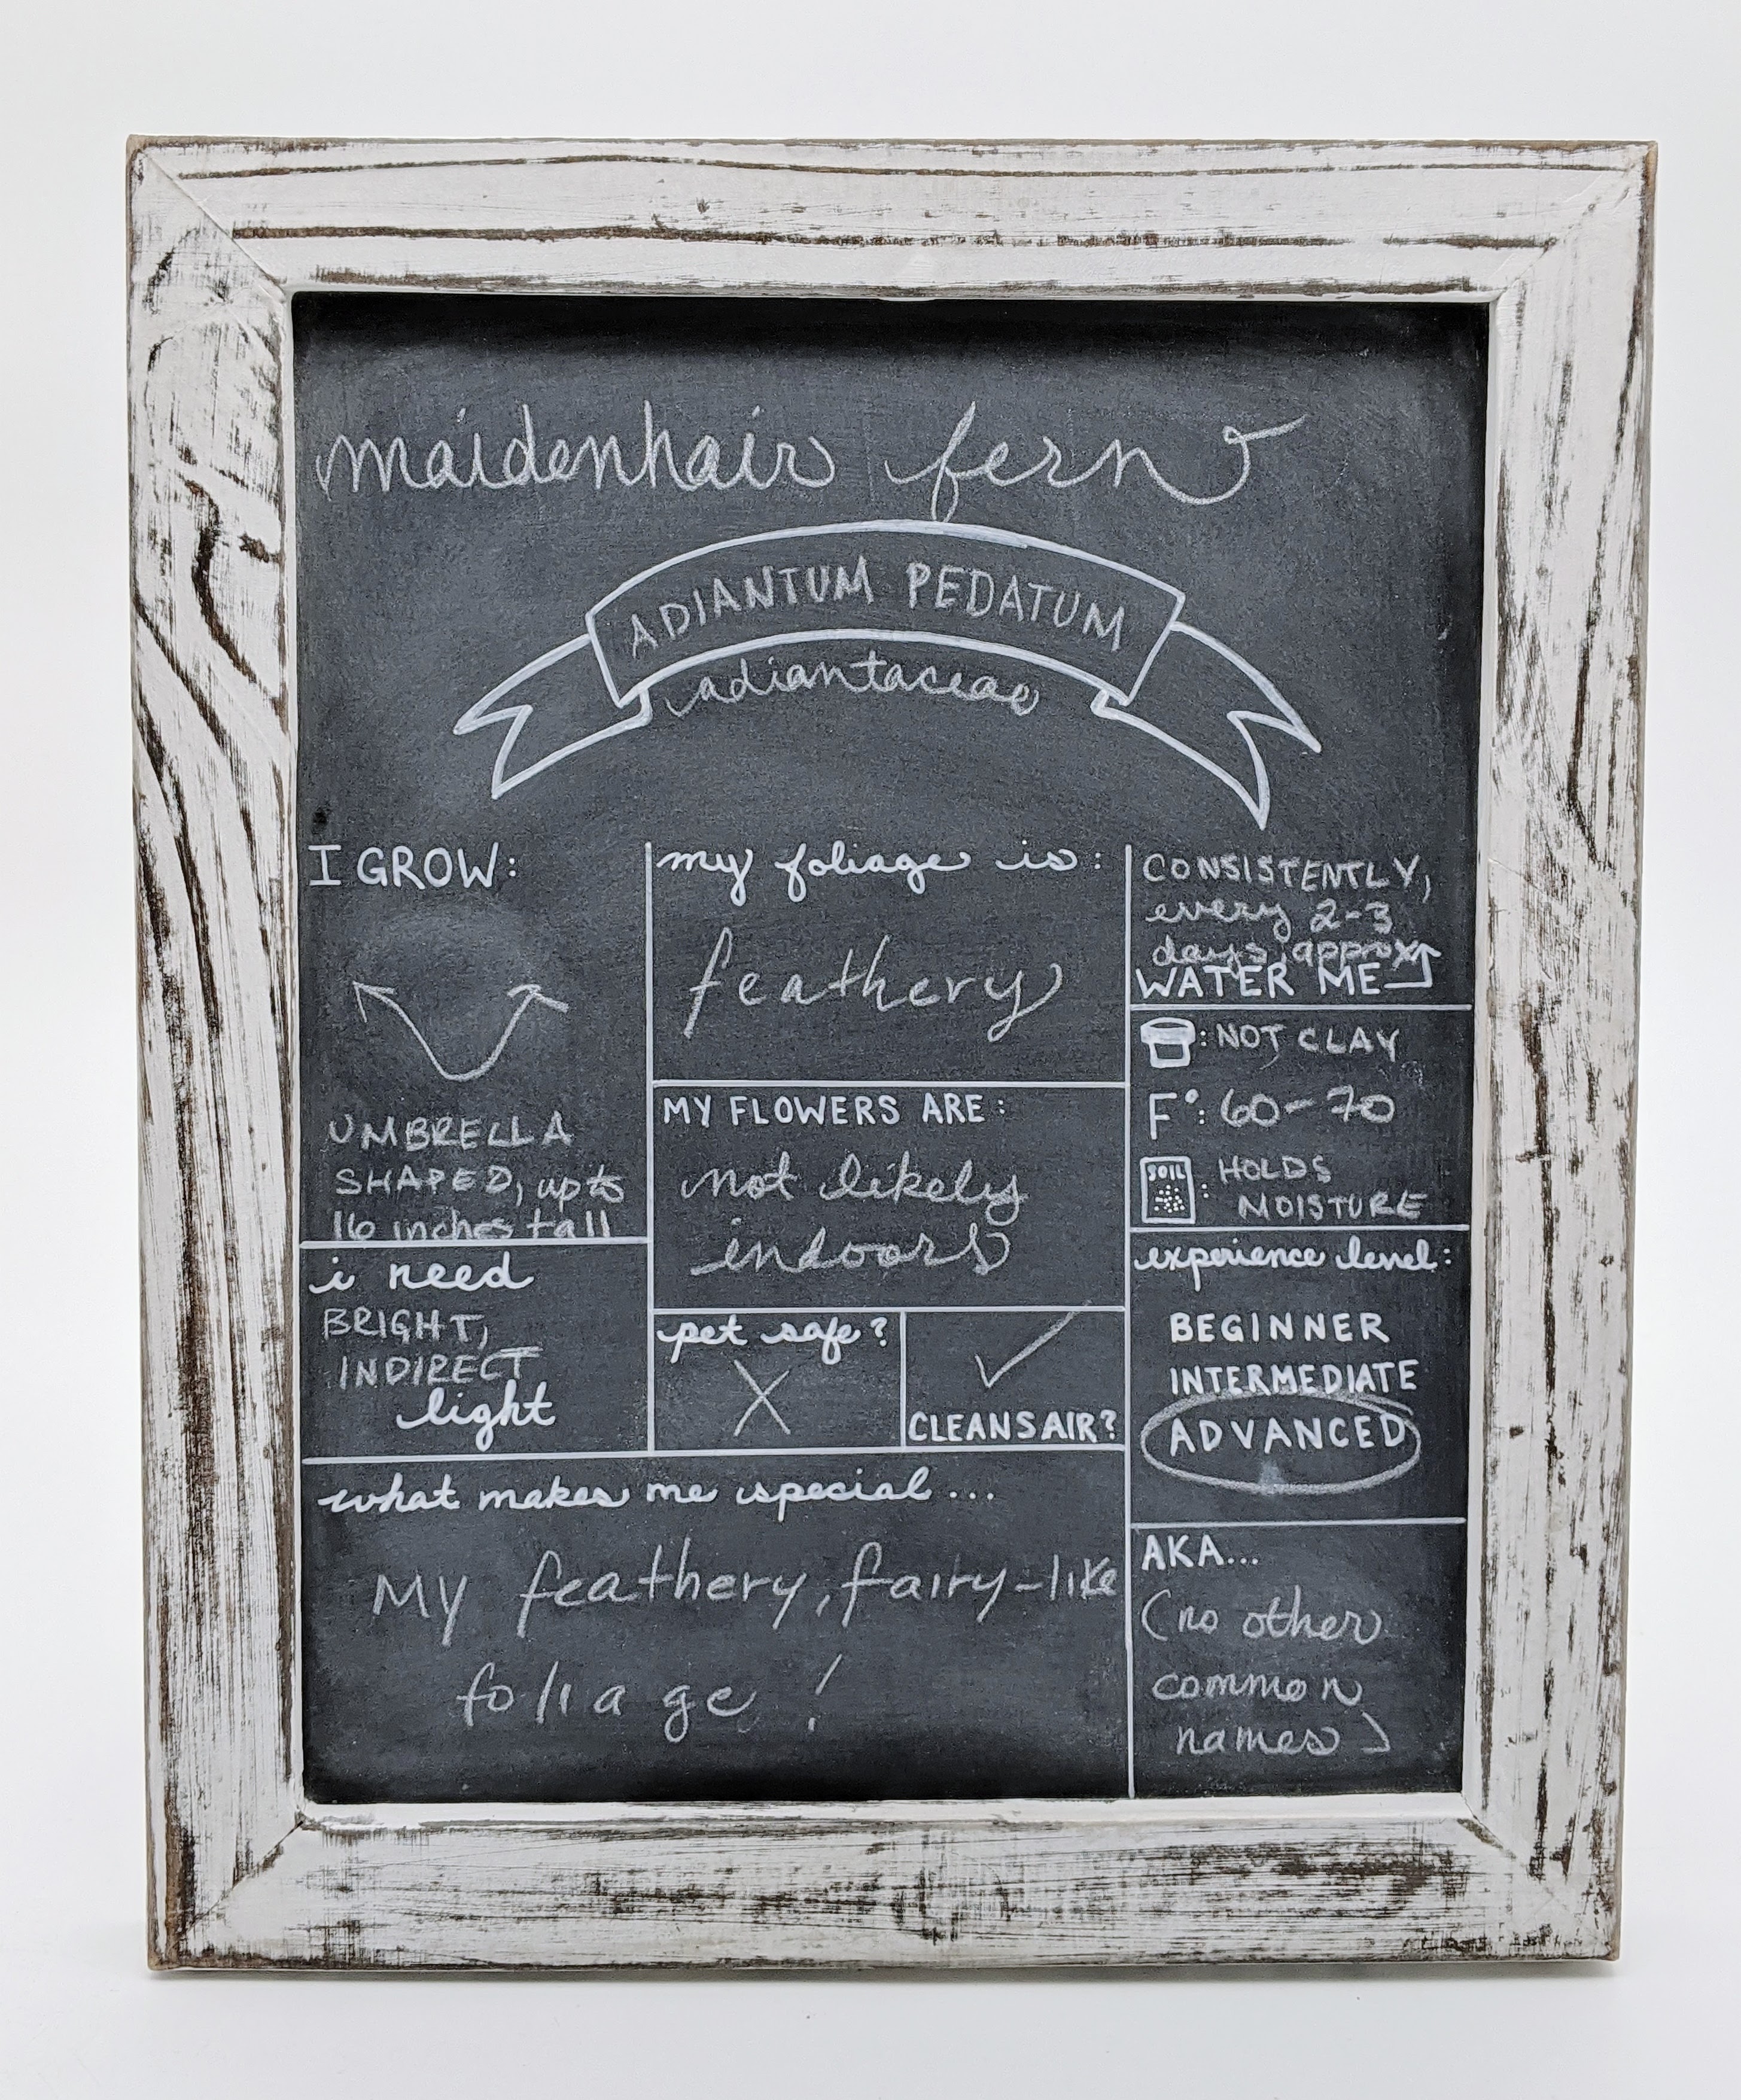 maidenhair fern
ADIANTUM PEDATUM
adiantaceae
I GROW:
UMBRELLA
SHAPED, up to
16 inches tall
i need
BRIGHT,
INDIRECT
light
my foliage is:
feathery
MY FLOWERS ARE:
not likely
indoors
pet safe?
X
CLEANS AIR?
CONSISTENTLY,
every 2-3
days, approx
WATER ME
: NOT CLAY
F°: 60-70
SOIL : HOLDS
MOISTURE
experience level:
BEGINNER
INTERMEDIATE
ADVANCED
what makes me special...
My feathery, fairy-like
foliage!
AKA...
(no other
common
names)